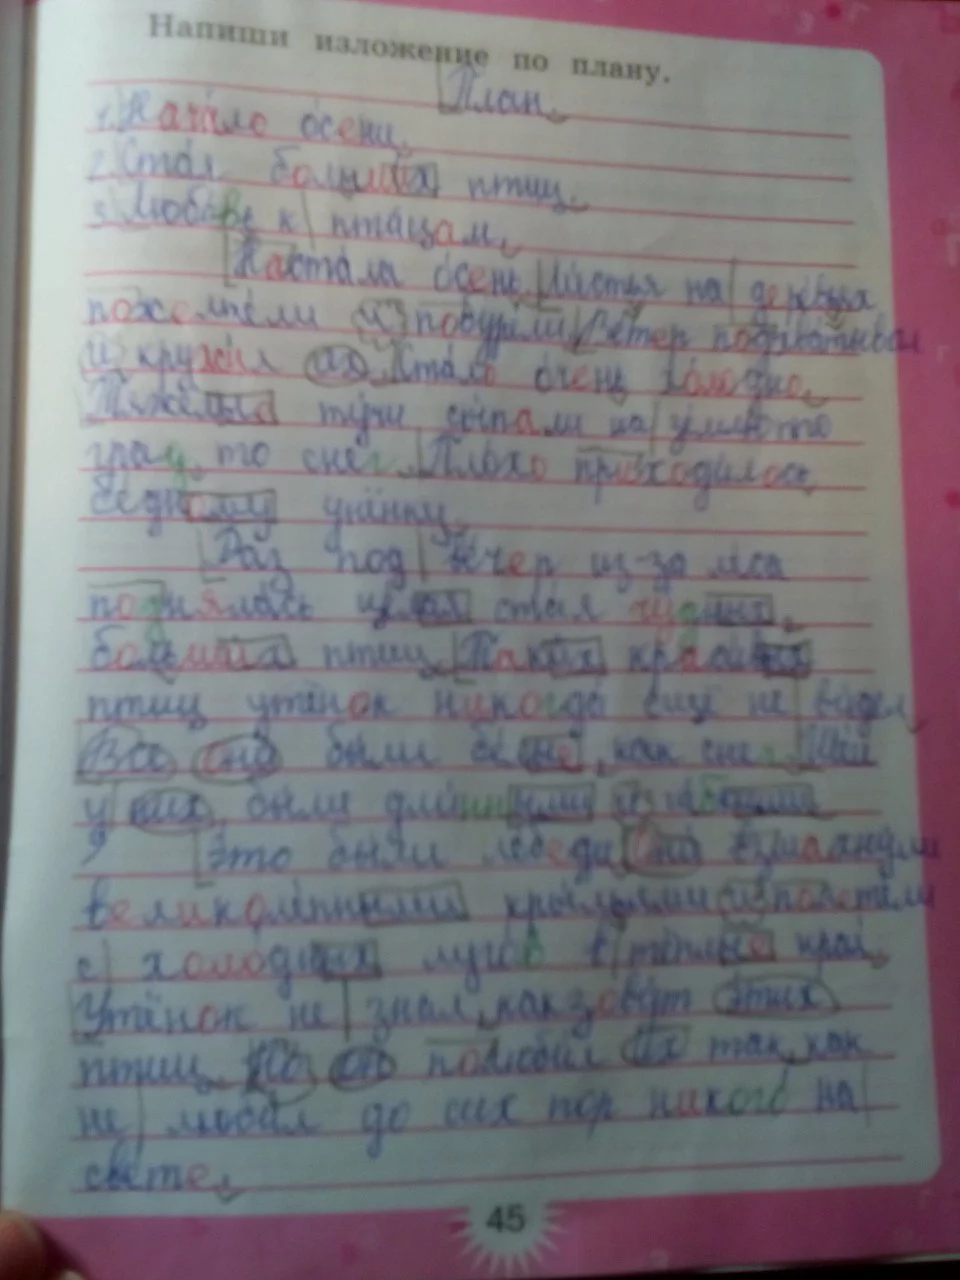 Напиши изложение по плану.
План.
1. Начало осени.
2. Стая больших птиц.
3. Любовь к птицам.
Настала осень. Листья на деревьях
пожелтели и побурели. Ветер подхватывал
и кружил их. Стало очень холодно.
Тяжёлые тучи сыпали на землю то
град, то снег. Плохо приходилось
бедному утёнку.
Раз под вечер из-за леса
поднялась целая стая чудных,
больших птиц. Таких красивых
птиц утёнок никогда ещё не видел.
Все они были белые, как снег. Шеи
у них были длинными и гибкими.
Это были лебеди. Они взмахнули
великолепными крыльями и полетели
с холодных лугов в тёплые края.
Утёнок не знал, как зовут этих
птиц. Но он полюбил их так, как
не любил до сих пор никого на
свете.
45